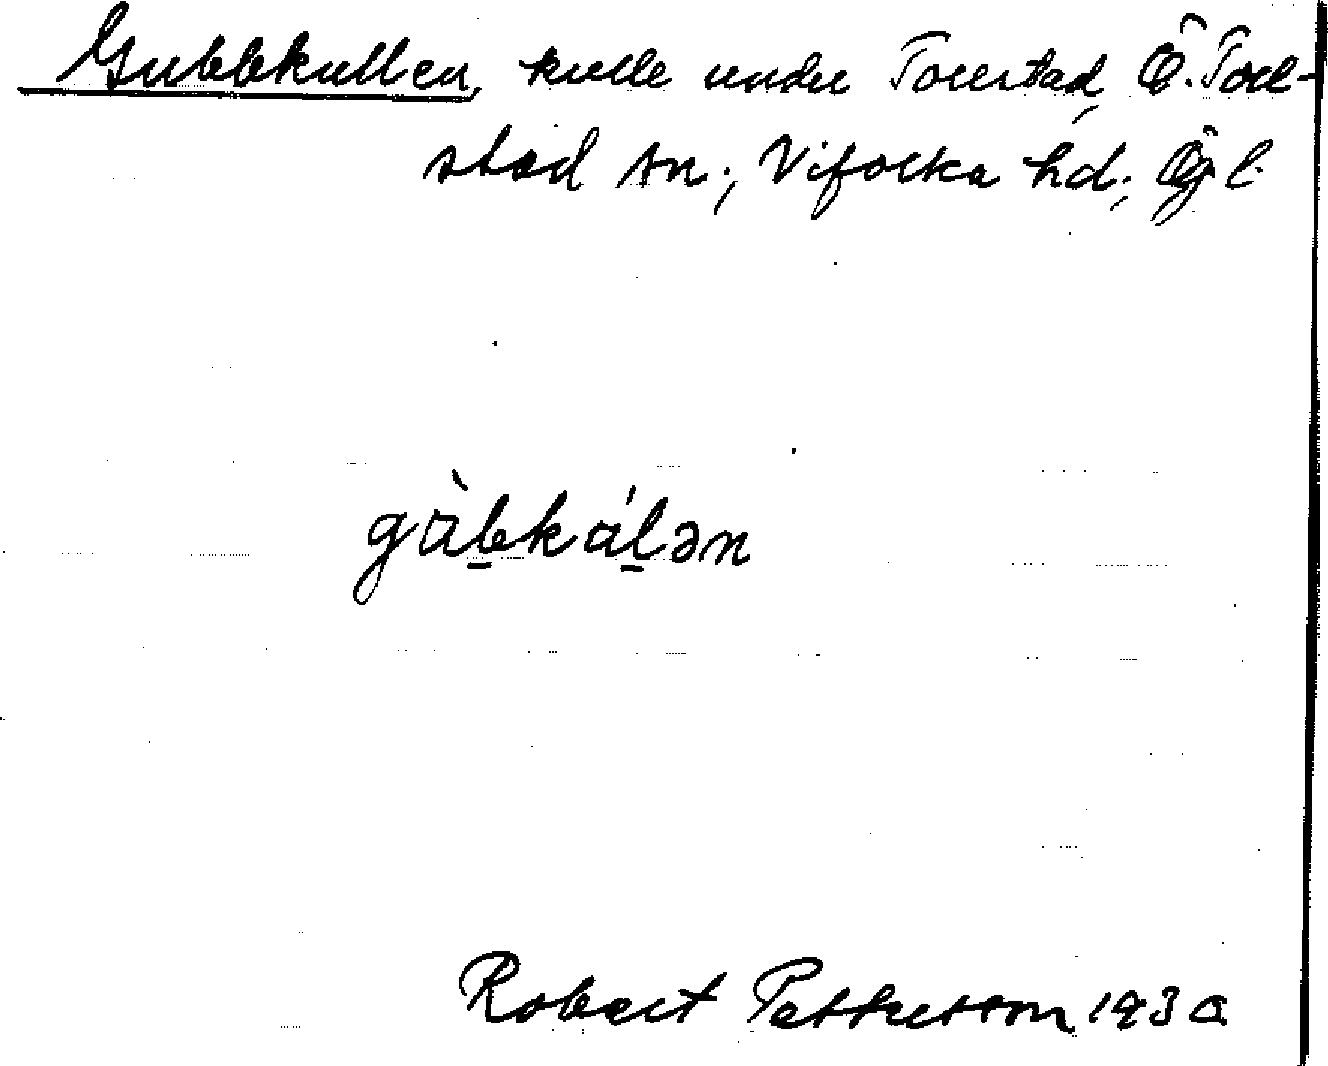 Gubbkullen, kulle under Tollstad, Ö. Toll-
stad sn., Vifolka hd., Ögl.
gàbkálən
Robert Pettersson 1930